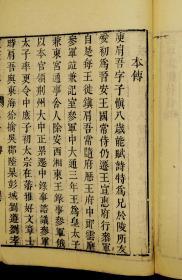 本傳
庾肩吾字子慎八歲能賦詩特為兄於陵所友
愛初為晉安王國常侍仍遷王宣惠府行叅軍
自是每王徙鎮肩吾常隨府歷王府中郎雲麾
叅軍並兼記室叅軍中大通三年王為皇太子
兼東宮通事舍人除安西湘東王錄事叅軍俄
以本官領荆州大中正累遷中錄事諮議叅軍
太子率更令中庶子初太宗在藩雅好文章士
時肩吾與東海徐摛吳郡陸杲彭城劉遵劉孝